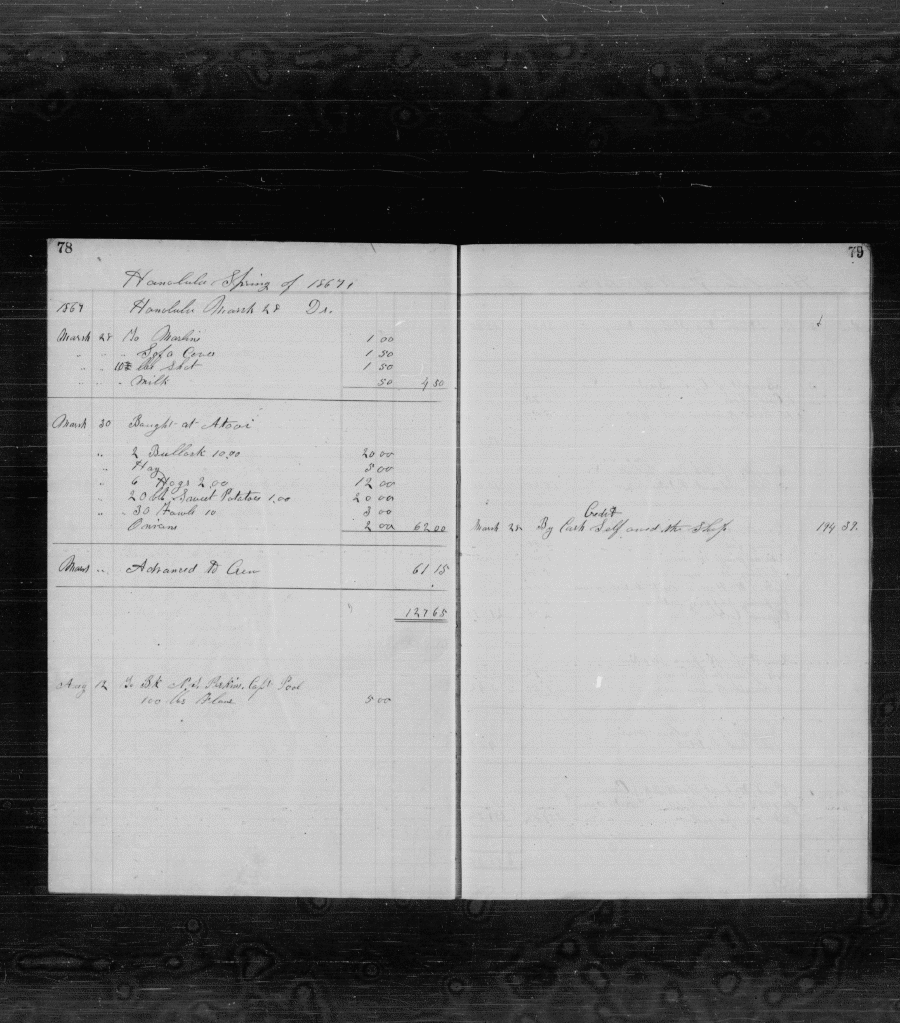 78
Honolulu Spring of 1867
1867 Honolulu March 28 Dr.
March 28 To Marline 1 00
" " " Sofa Cover 1 50
" " lbs Shot 1 50
" " " Milk 50 4 50
March 30 Bought at Atooi
" 2 Bullock 10.00 20 00
" Hay 3 00
" 6 Hogs 2.00 12 00
" 20 bbl Sweet Potatoes 1.00 20 00
" " 30 Fowls 10 3 00
Onions 2 00 62 00
March " Advanced to Crew 61 15
" 127 65
Aug 12 To Bk Perkins Capt
100 lbs 5 00
79
Credit
March 28 By Cash Self used the Ship 194 37